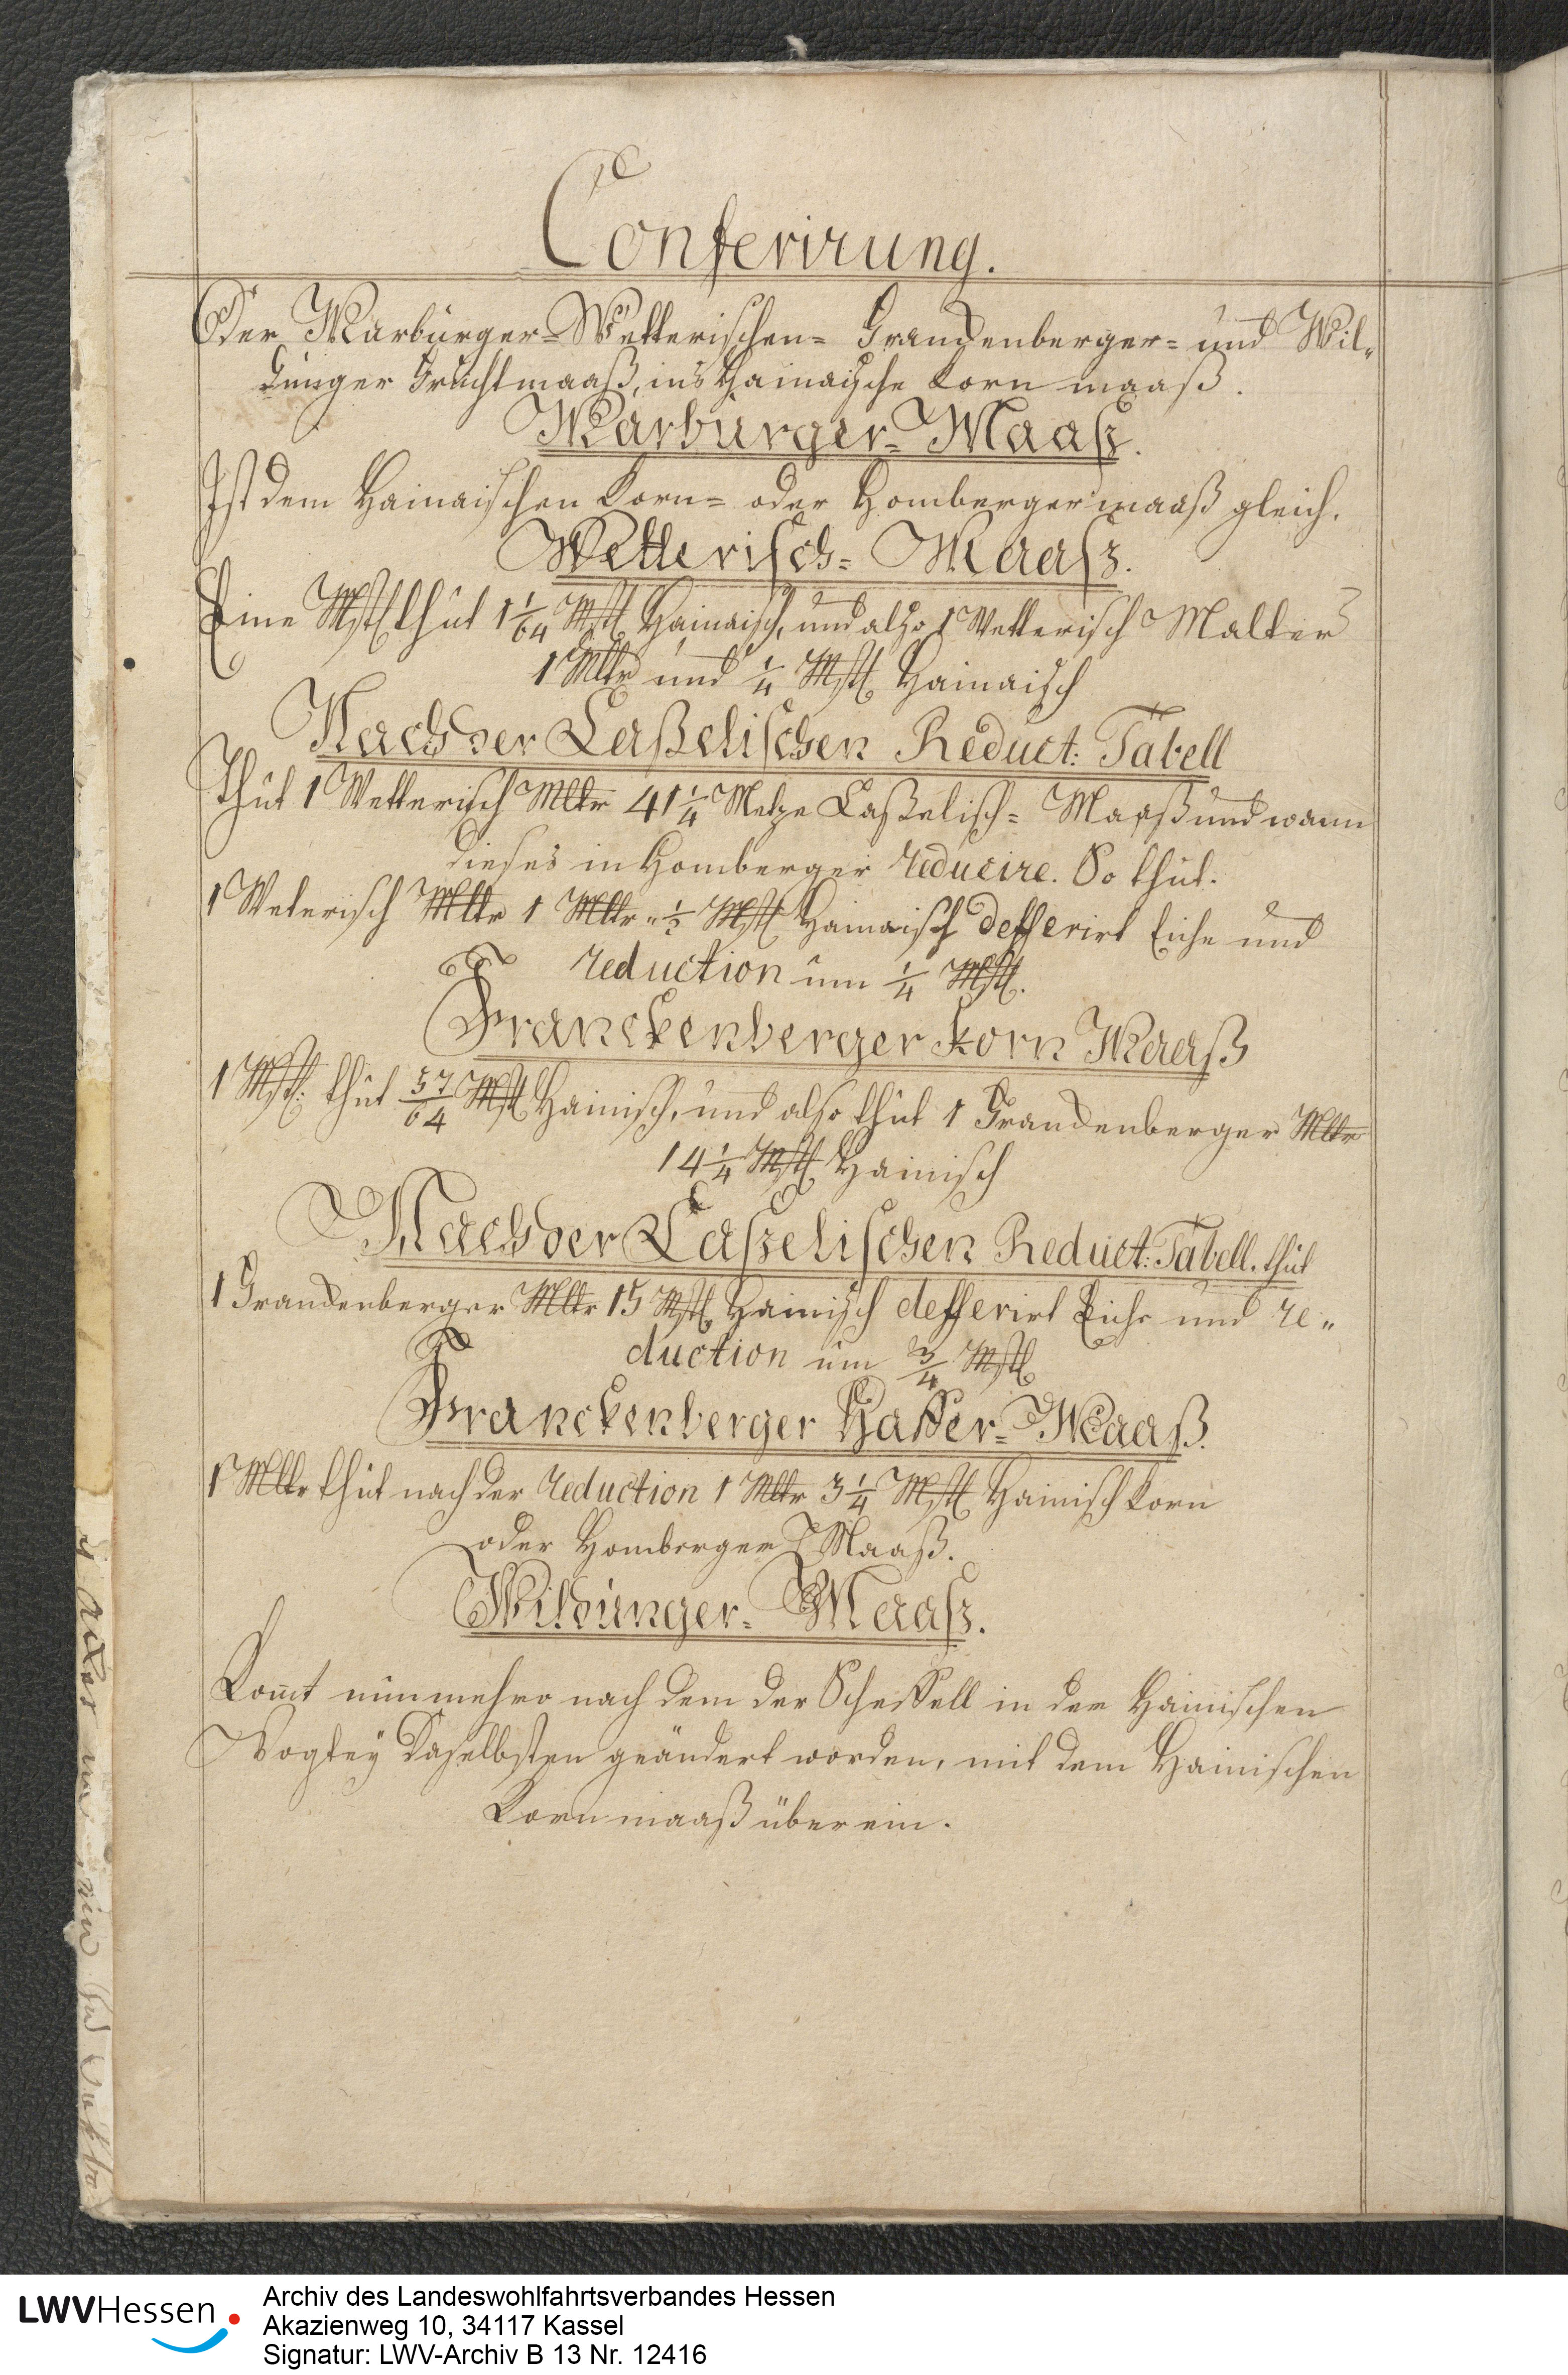 Conferirung.
Der Marburger= Wetterischen= Franckenberger= und Wil„
dunger Fruchtmaaß, ins Hainaische Korn maaß.
Marburger= Maaß.
Ist dem Hainaischen Korn= oder Homberger maaß gleich.
Wetterisch= Maaß.
Eine Mst thut 1 1/64 Mst Hainaisch, und also 1 Wetterisch Malter
1 Mltr und 1/4 Mst Hainaisch
Nach der Caßelischen Reduct: Tabell
Thut 1 Wetterisch Mltr 41 1/4 Metze Caßelisch= Maaß und wann
dieses in Homberger reducire. So thut.
1 Weterisch Mltr 1 Mltr „ 1/2 Mst Hainaisch defferirt Eiche und
reduction um 1/4 Mst.
Franckenberger Korn Maaß
1 Mst: thut 57/64 Mst Hainisch, und also thut 1 Franckenberger Mltr
14 1/4 Mst Hainisch
Nach der Caßelischen Reduct: Tabell. thut
1 Franckenberger Mltr 15 Mst Hainisch defferirt Eiche und re„
duction um 3/4 Mst
Franckenberger Haffer= Maaß.
1 Mltr thut nach der reduction 1 Mltr 3 1/4 Mst Hainisch Korn
oder Homberger Maaß.
Wildunger= Maaß.
Komt nunmehro nach dem der Scheffell in der Hainischen
Vogtey daselbsten geändert worden, mit dem Hainischen
Korn maaß überein.
LWVHessen
Archiv des Landeswohlfahrtsverbandes Hessen
Akazienweg 10, 34117 Kassel
Signatur: LWV-Archiv B 13 Nr. 12416